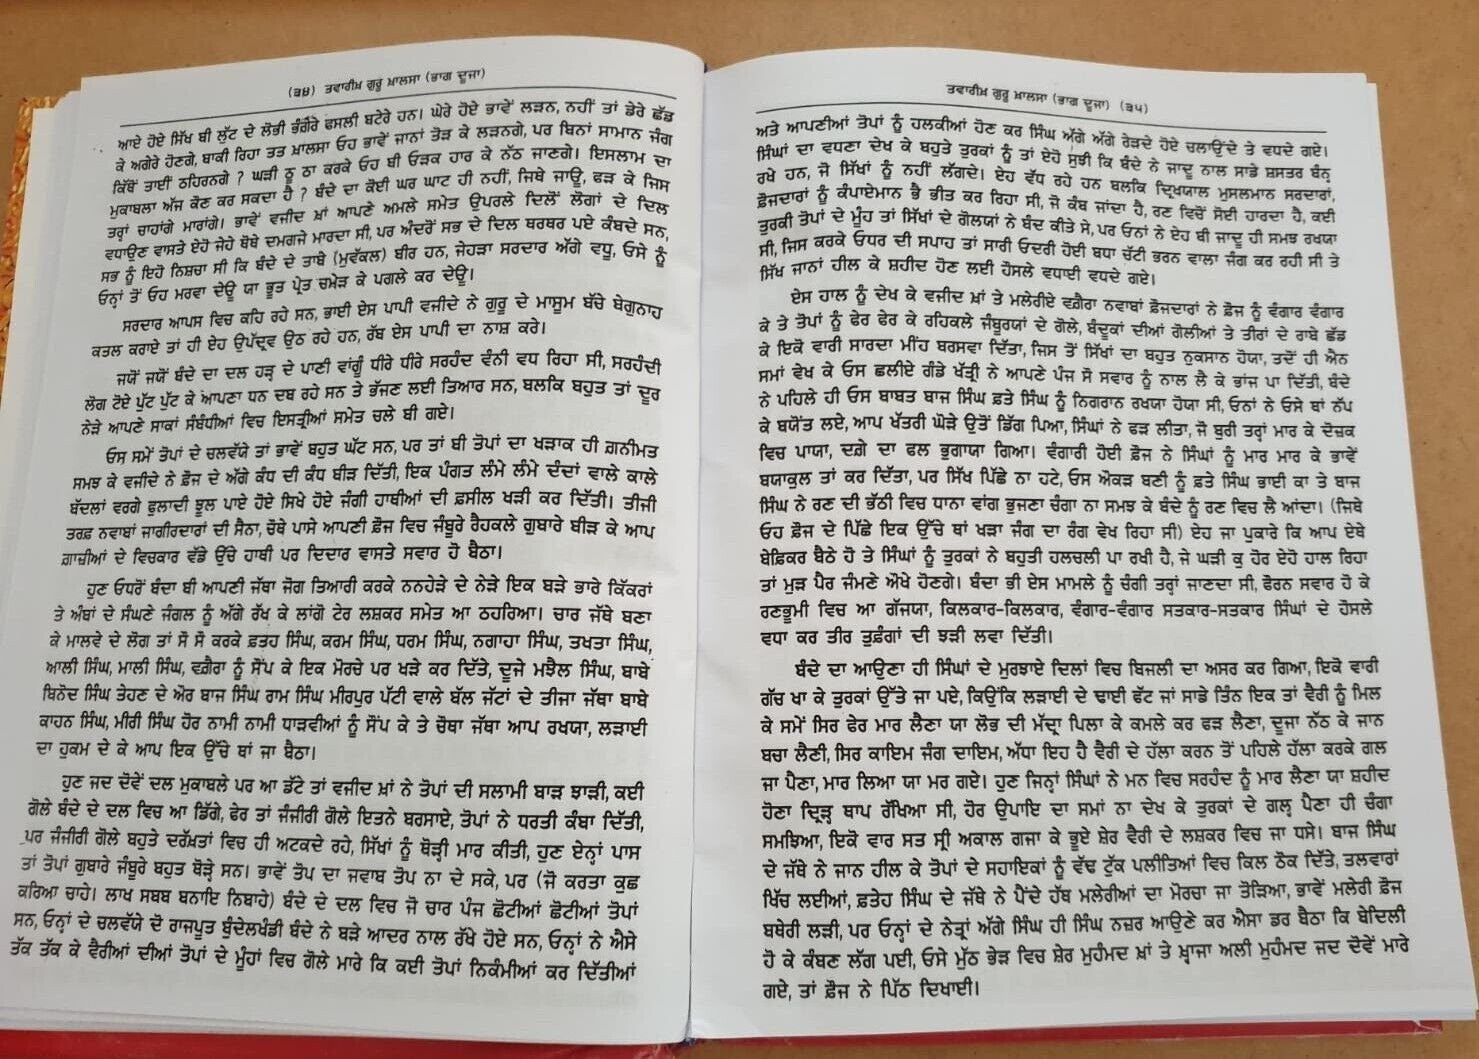 (੩੪) ਤਵਾਰੀਖ਼ ਗੁਰੂ ਖ਼ਾਲਸਾ (ਭਾਗ ਦੂਜਾ)
ਆਏ ਹੋਏ ਸਿੱਖ ਬੀ ਲੁੱਟ ਦੇ ਲੋਭੀ ਭੰਗੇਰੇ ਫਸਲੀ ਬਟੇਰੇ ਹਨ। ਘੇਰੇ ਹੋਏ ਭਾਵੇਂ ਲੜਨ, ਨਹੀਂ ਤਾਂ ਡੇਰੇ ਛੱਡ
ਕੇ ਅਗੇਰੇ ਹੋਣਗੇ, ਬਾਕੀ ਰਿਹਾ ਤਤ ਖ਼ਾਲਸਾ ਓਹ ਭਾਵੇਂ ਜਾਨਾਂ ਤੋੜ ਕੇ ਲੜਨਗੇ, ਪਰ ਬਿਨਾਂ ਸਾਮਾਨ ਜੰਗ
ਕਿੱਥੋਂ ਤਾਈਂ ਠਹਿਰਨਗੇ ? ਘੜੀ ਨੂ ਠਾ ਕਰਕੇ ਓਹ ਬੀ ਓੜਕ ਹਾਰ ਕੇ ਨੱਠ ਜਾਣਗੇ। ਇਸਲਾਮ ਦਾ
ਮੁਕਾਬਲਾ ਅੱਜ ਕੌਣ ਕਰ ਸਕਦਾ ਹੈ ? ਬੰਦੇ ਦਾ ਕੋਈ ਘਰ ਘਾਟ ਹੀ ਨਹੀਂ, ਜਿਥੇ ਜਾਊ, ਫੜ ਕੇ ਜਿਸ
ਤਰ੍ਹਾਂ ਚਾਹਾਂਗੇ ਮਾਰਾਂਗੇ। ਭਾਵੇਂ ਵਜੀਦ ਖ਼ਾਂ ਆਪਣੇ ਅਮਲੇ ਸਮੇਤ ਉਪਰਲੇ ਦਿਲੋਂ ਲੋਗਾਂ ਦੇ ਦਿਲ
ਵਧਾਉਣ ਵਾਸਤੇ ਏਹੋ ਜੇਹੇ ਥੋਥੇ ਦਮਗਜੇ ਮਾਰਦਾ ਸੀ, ਪਰ ਅੰਦਰੋਂ ਸਭ ਦੇ ਦਿਲ ਥਰਥਰ ਪਏ ਕੰਬਦੇ ਸਨ,
ਸਭ ਨੂੰ ਇਹੋ ਨਿਸ਼ਚਾ ਸੀ ਕਿ ਬੰਦੇ ਦੇ ਤਾਬੇ (ਮੁਵੱਕਲ) ਬੀਰ ਹਨ, ਜੇਹੜਾ ਸਰਦਾਰ ਅੱਗੇ ਵਧੂ, ਓਸੇ ਨੂੰ
ਓਨ੍ਹਾਂ ਤੋਂ ਓਹ ਮਰਵਾ ਦੇਊ ਯਾ ਭੂਤ ਪ੍ਰੇਤ ਚਮੋੜ ਕੇ ਪਗਲੇ ਕਰ ਦੇਊ।
ਸਰਦਾਰ ਆਪਸ ਵਿਚ ਕਹਿ ਰਹੇ ਸਨ, ਭਾਈ ਏਸ ਪਾਪੀ ਵਜੀਦੇ ਨੇ ਗੁਰੂ ਦੇ ਮਾਸੂਮ ਬੱਚੇ ਬੇਗੁਨਾਹ
ਕਤਲ ਕਰਾਏ ਤਾਂ ਹੀ ਏਹ ਉਪੱਦ੍ਰਵ ਉਠ ਰਹੇ ਹਨ, ਰੱਬ ਏਸ ਪਾਪੀ ਦਾ ਨਾਸ਼ ਕਰੇ।
ਜਯੋਂ ਜਯੋਂ ਬੰਦੇ ਦਾ ਦਲ ਹੜ੍ਹ ਦੇ ਪਾਣੀ ਵਾਂਗੂੰ ਧੀਰੇ ਧੀਰੇ ਸਰਹੰਦ ਵੰਨੀ ਵਧ ਰਿਹਾ ਸੀ, ਸਰਹੰਦੀ
ਲੋਗ ਟੋਏ ਪੁੱਟ ਪੁੱਟ ਕੇ ਆਪਣਾ ਧਨ ਦਬ ਰਹੇ ਸਨ ਤੇ ਭੱਜਣ ਲਈ ਤਿਆਰ ਸਨ, ਬਲਕਿ ਬਹੁਤ ਤਾਂ ਦੂਰ
ਨੇੜੇ ਆਪਣੇ ਸਾਕਾਂ ਸੰਬੰਧੀਆਂ ਵਿਚ ਇਸਤ੍ਰੀਆਂ ਸਮੇਤ ਚਲੇ ਬੀ ਗਏ।
ਓਸ ਸਮੇਂ ਤੋਪਾਂ ਦੇ ਚਲਵੱਯੇ ਤਾਂ ਭਾਵੇਂ ਬਹੁਤ ਘੱਟ ਸਨ, ਪਰ ਤਾਂ ਬੀ ਤੋਪਾਂ ਦਾ ਖੜਾਕ ਹੀ ਗ਼ਨੀਮਤ
ਸਮਝ ਕੇ ਵਜੀਦੇ ਨੇ ਫ਼ੌਜ ਦੇ ਅੱਗੇ ਕੰਧ ਦੀ ਕੰਧ ਬੀੜ ਦਿੱਤੀ, ਇਕ ਪੰਗਤ ਲੰਮੇ ਲੰਮੇ ਦੰਦਾਂ ਵਾਲੇ ਕਾਲੇ
ਬੱਦਲਾਂ ਵਰਗੇ ਫੁਲਾਦੀ ਝੂਲ ਪਾਏ ਹੋਏ ਸਿਖੇ ਹੋਏ ਜੰਗੀ ਹਾਥੀਆਂ ਦੀ ਫ਼ਸੀਲ ਖੜੀ ਕਰ ਦਿੱਤੀ। ਤੀਜੀ
ਤਰਫ਼ ਨਵਾਬਾਂ ਜਾਗੀਰਦਾਰਾਂ ਦੀ ਸੈਨਾ, ਚੌਥੇ ਪਾਸੇ ਆਪਣੀ ਫ਼ੌਜ ਵਿਚ ਜੰਬੂਰੇ ਰੈਹਕਲੇ ਗੁਬਾਰੇ ਬੀੜ ਕੇ ਆਪ
ਗ਼ਾਜ਼ੀਆਂ ਦੇ ਵਿਚਕਾਰ ਵੱਡੇ ਉੱਚੇ ਹਾਥੀ ਪਰ ਦਿਦਾਰ ਵਾਸਤੇ ਸਵਾਰ ਹੋ ਬੈਠਾ।
ਹੁਣ ਓਧਰੋਂ ਬੰਦਾ ਬੀ ਆਪਣੀ ਜੱਥਾ ਜੋਗ ਤਿਆਰੀ ਕਰਕੇ ਨਨਹੇੜੇ ਦੇ ਨੇੜੇ ਇਕ ਬੜੇ ਭਾਰੇ ਕਿੱਕਰਾਂ
ਤੇ ਅੰਬਾਂ ਦੇ ਸੰਘਣੇ ਜੰਗਲ ਨੂੰ ਅੱਗੇ ਰੱਖ ਕੇ ਲਾਂਗੋ ਟੇਰ ਲਸ਼ਕਰ ਸਮੇਤ ਆ ਠਹਰਿਆ। ਚਾਰ ਜੱਥੇ ਬਣਾ
ਕੇ ਮਾਲਵੇ ਦੇ ਲੋਗ ਤਾਂ ਸੌ ਸੌ ਕਰਕੇ ਫ਼ਤਹ ਸਿੰਘ, ਕਰਮ ਸਿੰਘ, ਧਰਮ ਸਿੰਘ, ਨਗਾਹਾ ਸਿੰਘ, ਤਖਤਾ ਸਿੰਘ,
ਆਲੀ ਸਿੰਘ, ਮਾਲੀ ਸਿੰਘ, ਵਗ਼ੈਰਾ ਨੂੰ ਸੌਂਪ ਕੇ ਇਕ ਮੋਰਚੇ ਪਰ ਖੜੇ ਕਰ ਦਿੱਤੇ, ਦੂਜੇ ਮਝੈਲ ਸਿੰਘ, ਬਾਬੇ
ਬਿਨੋਦ ਸਿੰਘ ਤੇਹਣ ਦੇ ਔਰ ਬਾਜ ਸਿੰਘ ਰਾਮ ਸਿੰਘ ਮੀਰਪੁਰ ਪੱਟੀ ਵਾਲੇ ਬੱਲ ਜੱਟਾਂ ਦੇ ਤੀਜਾ ਜੱਥਾ ਬਾਬੇ
ਕਾਹਨ ਸਿੰਘ, ਮੀਰੀ ਸਿੰਘ ਹੋਰ ਨਾਮੀ ਨਾਮੀ ਧਾੜਵੀਆਂ ਨੂੰ ਸੌਂਪ ਕੇ ਤੇ ਚੌਥਾ ਜੱਥਾ ਆਪ ਰਖਯਾ, ਲੜਾਈ
ਦਾ ਹੁਕਮ ਦੇ ਕੇ ਆਪ ਇਕ ਉੱਚੇ ਥਾਂ ਜਾ ਬੈਠਾ।
ਹੁਣ ਜਦ ਦੋਵੇਂ ਦਲ ਮੁਕਾਬਲੇ ਪਰ ਆ ਡੱਟੇ ਤਾਂ ਵਜੀਦ ਖ਼ਾਂ ਨੇ ਤੋਪਾਂ ਦੀ ਸਲਾਮੀ ਬਾੜ ਝਾੜੀ, ਕਈ
ਗੋਲੇ ਬੰਦੇ ਦੇ ਦਲ ਵਿਚ ਆ ਡਿੱਗੇ, ਫੇਰ ਤਾਂ ਜੰਜੀਰੀ ਗੋਲੇ ਇਤਨੇ ਬਰਸਾਏ, ਤੋਪਾਂ ਨੇ ਧਰਤੀ ਕੰਬਾ ਦਿੱਤੀ,
ਪਰ ਜੰਜੀਰੀ ਗੋਲੇ ਬਹੁਤੇ ਦਰੱਖ਼ਤਾਂ ਵਿਚ ਹੀ ਅਟਕਦੇ ਰਹੇ, ਸਿੱਖਾਂ ਨੂੰ ਥੋੜ੍ਹੀ ਮਾਰ ਕੀਤੀ, ਹੁਣ ਏਨ੍ਹਾਂ ਪਾਸ
ਤਾਂ ਤੋਪਾਂ ਗੁਬਾਰੇ ਜੰਬੂਰੇ ਬਹੁਤ ਥੋੜ੍ਹੇ ਸਨ। ਭਾਵੇਂ ਤੋਪ ਦਾ ਜਵਾਬ ਤੋਪ ਨਾ ਦੇ ਸਕੇ, ਪਰ (ਜੋ ਕਰਤਾ ਕੁਛ
ਕਰਿਆ ਚਾਹੇ। ਲਾਖ ਸਬਬ ਬਨਾਇ ਨਿਬਾਹੇ) ਬੰਦੇ ਦੇ ਦਲ ਵਿਚ ਜੋ ਚਾਰ ਪੰਜ ਛੋਟੀਆਂ ਛੋਟੀਆਂ ਤੋਪਾਂ
ਸਨ, ਓਨ੍ਹਾਂ ਦੇ ਚਲਵੱਯੇ ਦੋ ਰਾਜਪੂਤ ਬੁੰਦੇਲਖੰਡੀ ਬੰਦੇ ਨੇ ਬੜੇ ਆਦਰ ਨਾਲ ਰੱਖੇ ਹੋਏ ਸਨ, ਓਨ੍ਹਾਂ ਨੇ ਐਸੇ
ਤੱਕ ਤੱਕ ਕੇ ਵੈਰੀਆਂ ਦੀਆਂ ਤੋਪਾਂ ਦੇ ਮੂੰਹਾਂ ਵਿਚ ਗੋਲੇ ਮਾਰੇ ਕਿ ਕਈ ਤੋਪਾਂ ਨਿਕੰਮੀਆਂ ਕਰ ਦਿੱਤੀਆਂ
ਤਵਾਰੀਖ਼ ਗੁਰੂ ਖ਼ਾਲਸਾ (ਭਾਗ ਦੂਜਾ) (੩੫)
ਅਤੇ ਆਪਣੀਆਂ ਤੋਪਾਂ ਨੂੰ ਹਲਕੀਆਂ ਹੋਣ ਕਰ ਸਿੰਘ ਅੱਗੇ ਅੱਗੇ ਰੇੜਦੇ ਹੋਏ ਚਲਾਉਂਦੇ ਤੇ ਵਧਦੇ ਗਏ।
ਸਿੰਘਾਂ ਦਾ ਵਧਣਾ ਦੇਖ ਕੇ ਬਹੁਤੇ ਤੁਰਕਾਂ ਨੂੰ ਤਾਂ ਏਹੋ ਸੁਝੀ ਕਿ ਬੰਦੇ ਨੇ ਜਾਦੂ ਨਾਲ ਸਾਡੇ ਸ਼ਸਤਰ ਬੰਨ੍ਹ
ਰਖੇ ਹਨ, ਜੋ ਸਿੱਖਾਂ ਨੂੰ ਨਹੀਂ ਲੱਗਦੇ। ਏਹ ਵੱਧ ਰਹੇ ਹਨ ਬਲਕਿ ਦ੍ਰਿਖਯਾਲ ਮੁਸਲਮਾਨ ਸਰਦਾਰਾਂ,
ਫ਼ੌਜਦਾਰਾਂ ਨੂੰ ਕੰਪਾਏਮਾਨ ਭੈ ਭੀਤ ਕਰ ਰਿਹਾ ਸੀ, ਜੋ ਕੰਬ ਜਾਂਦਾ ਹੈ, ਰਣ ਵਿਚੋਂ ਸੋਈ ਹਾਰਦਾ ਹੈ, ਕਈ
ਤੁਰਕੀ ਤੋਪਾਂ ਦੇ ਮੂੰਹ ਤਾਂ ਸਿੱਖਾਂ ਦੇ ਗੋਲਯਾਂ ਨੇ ਬੰਦ ਕੀਤੇ ਸੇ, ਪਰ ਓਨਾਂ ਨੇ ਏਹ ਬੀ ਜਾਦੂ ਹੀ ਸਮਝ ਰਖਯਾ
ਸੀ, ਜਿਸ ਕਰਕੇ ਓਧਰ ਦੀ ਸਪਾਹ ਤਾਂ ਸਾਰੀ ਓਦਰੀ ਹੋਈ ਬਧਾ ਚੱਟੀ ਭਰਨ ਵਾਲਾ ਜੰਗ ਕਰ ਰਹੀ ਸੀ ਤੇ
ਸਿੱਖ ਜਾਨਾਂ ਹੀਲ ਕੇ ਸ਼ਹੀਦ ਹੋਣ ਲਈ ਹੌਸਲੇ ਵਧਾਈ ਵਧਦੇ ਗਏ।
ਏਸ ਹਾਲ ਨੂੰ ਦੇਖ ਕੇ ਵਜੀਦ ਖ਼ਾਂ ਤੇ ਮਲੇਰੀਏ ਵਗ਼ੈਰਾ ਨਵਾਬਾਂ ਫ਼ੌਜਦਾਰਾਂ ਨੇ ਫ਼ੌਜ ਨੂੰ ਵੰਗਾਰ ਵੰਗਾਰ
ਕੇ ਤੇ ਤੋਪਾਂ ਨੂੰ ਫੇਰ ਫੇਰ ਕੇ ਰਹਿਕਲੇ ਜੰਬੂਰਯਾਂ ਦੇ ਗੋਲੇ, ਬੰਦੂਕਾਂ ਦੀਆਂ ਗੋਲੀਆਂ ਤੇ ਤੀਰਾਂ ਦੇ ਰਾਬੇ ਛੱਡ
ਕੇ ਇਕੋ ਵਾਰੀ ਸਾਰਦਾ ਮੀਂਹ ਬਰਸਵਾ ਦਿੱਤਾ, ਜਿਸ ਤੋਂ ਸਿੱਖਾਂ ਦਾ ਬਹੁਤ ਨੁਕਸਾਨ ਹੋਯਾ, ਤਦੋਂ ਹੀ ਐਨ
ਸਮਾਂ ਵੇਖ ਕੇ ਓਸ ਛਲੀਏ ਗੰਡੇ ਖੱਤ੍ਰੀ ਨੇ ਆਪਣੇ ਪੰਜ ਸੌ ਸਵਾਰ ਨੂੰ ਨਾਲ ਲੈ ਕੇ ਭਾਂਜ ਪਾ ਦਿੱਤੀ, ਬੰਦੇ
ਨੇ ਪਹਿਲੇ ਹੀ ਓਸ ਬਾਬਤ ਬਾਜ ਸਿੰਘ ਫ਼ਤੇ ਸਿੰਘ ਨੂੰ ਨਿਗਰਾਨ ਰਖਯਾ ਹੋਯਾ ਸੀ, ਓਨਾਂ ਨੇ ਓਸੇ ਥਾਂ ਨੱਪ
ਕੇ ਬਯੋਂਤ ਲਏ, ਆਪ ਖੱਤਰੀ ਘੋੜੇ ਉਤੋਂ ਡਿੱਗ ਪਿਆ, ਸਿੰਘਾਂ ਨੇ ਫੜ ਲੀਤਾ, ਜੋ ਬੁਰੀ ਤਰ੍ਹਾਂ ਮਾਰ ਕੇ ਦੋਜ਼ਕ
ਵਿਚ ਪਾਯਾ, ਦਗ਼ੇ ਦਾ ਫਲ ਭੁਗਾਯਾ ਗਿਆ। ਵੰਗਾਰੀ ਹੋਈ ਫ਼ੌਜ ਨੇ ਸਿੰਘਾਂ ਨੂੰ ਮਾਰ ਮਾਰ ਕੇ ਭਾਵੇਂ
ਬਯਾਕੁਲ ਤਾਂ ਕਰ ਦਿੱਤਾ, ਪਰ ਸਿੱਖ ਪਿੱਛੇ ਨਾ ਹਟੇ, ਓਸ ਔਕੜ ਬਣੀ ਨੂੰ ਫ਼ਤੇ ਸਿੰਘ ਭਾਈ ਕਾ ਤੇ ਬਾਜ
ਸਿੰਘ ਨੇ ਰਣ ਦੀ ਭੱਠੀ ਵਿਚ ਧਾਨਾ ਵਾਂਗ ਭੁਜਣਾ ਚੰਗਾ ਨਾ ਸਮਝ ਕੇ ਬੰਦੇ ਨੂੰ ਰਣ ਵਿਚ ਲੈ ਆਂਦਾ। (ਜਿਥੇ
ਓਹ ਫ਼ੌਜ ਦੇ ਪਿੱਛੇ ਇਕ ਉੱਚੇ ਥਾਂ ਖੜਾ ਜੰਗ ਦਾ ਰੰਗ ਵੇਖ ਰਿਹਾ ਸੀ) ਏਹ ਜਾ ਪੁਕਾਰੇ ਕਿ ਆਪ ਏਥੇ
ਬੇਫ਼ਿਕਰ ਬੈਠੇ ਹੋ ਤੇ ਸਿੰਘਾਂ ਨੂੰ ਤੁਰਕਾਂ ਨੇ ਬਹੁਤੀ ਹਲਚਲੀ ਪਾ ਰਖੀ ਹੈ, ਜੇ ਘੜੀ ਕੁ ਹੋਰ ਏਹੋ ਹਾਲ ਰਿਹਾ
ਤਾਂ ਮੁੜ ਪੈਰ ਜੰਮਣੇ ਔਖੇ ਹੋਣਗੇ। ਬੰਦਾ ਭੀ ਏਸ ਮਾਮਲੇ ਨੂੰ ਚੰਗੀ ਤਰ੍ਹਾਂ ਜਾਣਦਾ ਸੀ, ਫੌਰਨ ਸਵਾਰ ਹੋ ਕੇ
ਰਣਭੂਮੀ ਵਿਚ ਆ ਗੱਜਯਾ, ਕਿਲਕਾਰ-ਕਿਲਕਾਰ, ਵੰਗਾਰ-ਵੰਗਾਰ ਸਤਕਾਰ-ਸਤਕਾਰ ਸਿੰਘਾਂ ਦੇ ਹੌਸਲੇ
ਵਧਾ ਕਰ ਤੀਰ ਤੁਫ਼ੰਗਾਂ ਦੀ ਝੜੀ ਲਵਾ ਦਿੱਤੀ।
ਬੰਦੇ ਦਾ ਆਉਣਾ ਹੀ ਸਿੰਘਾਂ ਦੇ ਮੁਰਝਾਏ ਦਿਲਾਂ ਵਿਚ ਬਿਜਲੀ ਦਾ ਅਸਰ ਕਰ ਗਿਆ, ਇਕੋ ਵਾਰੀ
ਗੱਚ ਖਾ ਕੇ ਤੁਰਕਾਂ ਉੱਤੇ ਜਾ ਪਏ, ਕਿਉਂਕਿ ਲੜਾਈ ਦੇ ਢਾਈ ਫੱਟ ਜਾਂ ਸਾਡੇ ਤਿੰਨ ਇਕ ਤਾਂ ਵੈਰੀ ਨੂੰ ਮਿਲ
ਕੇ ਸਮੇਂ ਸਿਰ ਫੇਰ ਮਾਰ ਲੈਣਾ ਯਾ ਲੋਭ ਦੀ ਮੱਦ੍ਰਾ ਪਿਲਾ ਕੇ ਕਮਲੇ ਕਰ ਫੜ ਲੈਣਾ, ਦੂਜਾ ਨੱਠ ਕੇ ਜਾਨ
ਬਚਾ ਲੈਣੀ, ਸਿਰ ਕਾਇਮ ਜੰਗ ਦਾਇਮ, ਅੱਧਾ ਇਹ ਹੈ ਵੈਰੀ ਦੇ ਹੱਲਾ ਕਰਨ ਤੋਂ ਪਹਿਲੇ ਹੱਲਾ ਕਰਕੇ ਗਲ
ਜਾ ਪੈਣਾ, ਮਾਰ ਲਿਆ ਯਾ ਮਰ ਗਏ। ਹੁਣ ਜਿਨ੍ਹਾਂ ਸਿੰਘਾਂ ਨੇ ਮਨ ਵਿਚ ਸਰਹੰਦ ਨੂੰ ਮਾਰ ਲੈਣਾ ਯਾ ਸ਼ਹੀਦ
ਹੋਣਾ ਦ੍ਰਿੜ੍ਹ ਥਾਪ ਰੱਖਿਆ ਸੀ, ਹੋਰ ਉਪਾਇ ਦਾ ਸਮਾਂ ਨਾ ਦੇਖ ਕੇ ਤੁਰਕਾਂ ਦੇ ਗਲ੍ਹ ਪੈਣਾ ਹੀ ਚੰਗਾ
ਸਮਝਿਆ, ਇਕੋ ਵਾਰ ਸਤ ਸ੍ਰੀ ਅਕਾਲ ਗਜਾ ਕੇ ਭੂਏ ਸ਼ੇਰ ਵੈਰੀ ਦੇ ਲਸ਼ਕਰ ਵਿਚ ਜਾ ਧਸੇ। ਬਾਜ ਸਿੰਘ
ਦੇ ਜੱਥੇ ਨੇ ਜਾਨ ਹੀਲ ਕੇ ਤੋਪਾਂ ਦੇ ਸਹਾਇਕਾਂ ਨੂੰ ਵੱਢ ਟੁੱਕ ਪਲੀਤਿਆਂ ਵਿਚ ਕਿਲ ਠੋਕ ਦਿੱਤੇ, ਤਲਵਾਰਾਂ
ਖਿੱਚ ਲਈਆਂ, ਫ਼ਤੇਹ ਸਿੰਘ ਦੇ ਜੱਥੇ ਨੇ ਪੈਂਦੇ ਹੱਥ ਮਲੇਰੀਆਂ ਦਾ ਮੋਰਚਾ ਜਾ ਤੋੜਿਆ, ਭਾਵੇਂ ਮਲੇਰੀ ਫ਼ੌਜ
ਬਥੇਰੀ ਲੜੀ, ਪਰ ਓਨ੍ਹਾਂ ਦੇ ਨੇਤ੍ਰਾਂ ਅੱਗੇ ਸਿੰਘ ਹੀ ਸਿੰਘ ਨਜ਼ਰ ਆਉਣੇ ਕਰ ਐਸਾ ਡਰ ਬੈਠਾ ਕਿ ਬੇਦਿਲੀ
ਹੋ ਕੇ ਕੰਬਣ ਲੱਗ ਪਈ, ਓਸੇ ਮੁੱਠ ਭੇੜ ਵਿਚ ਸ਼ੇਰ ਮੁਹੰਮਦ ਖ਼ਾਂ ਤੇ ਖ਼੍ਵਾਜਾ ਅਲੀ ਮੁਹੰਮਦ ਜਦ ਦੋਵੇਂ ਮਾਰੇ
ਗਏ, ਤਾਂ ਫ਼ੌਜ ਨੇ ਪਿੱਠ ਦਿਖਾਈ।